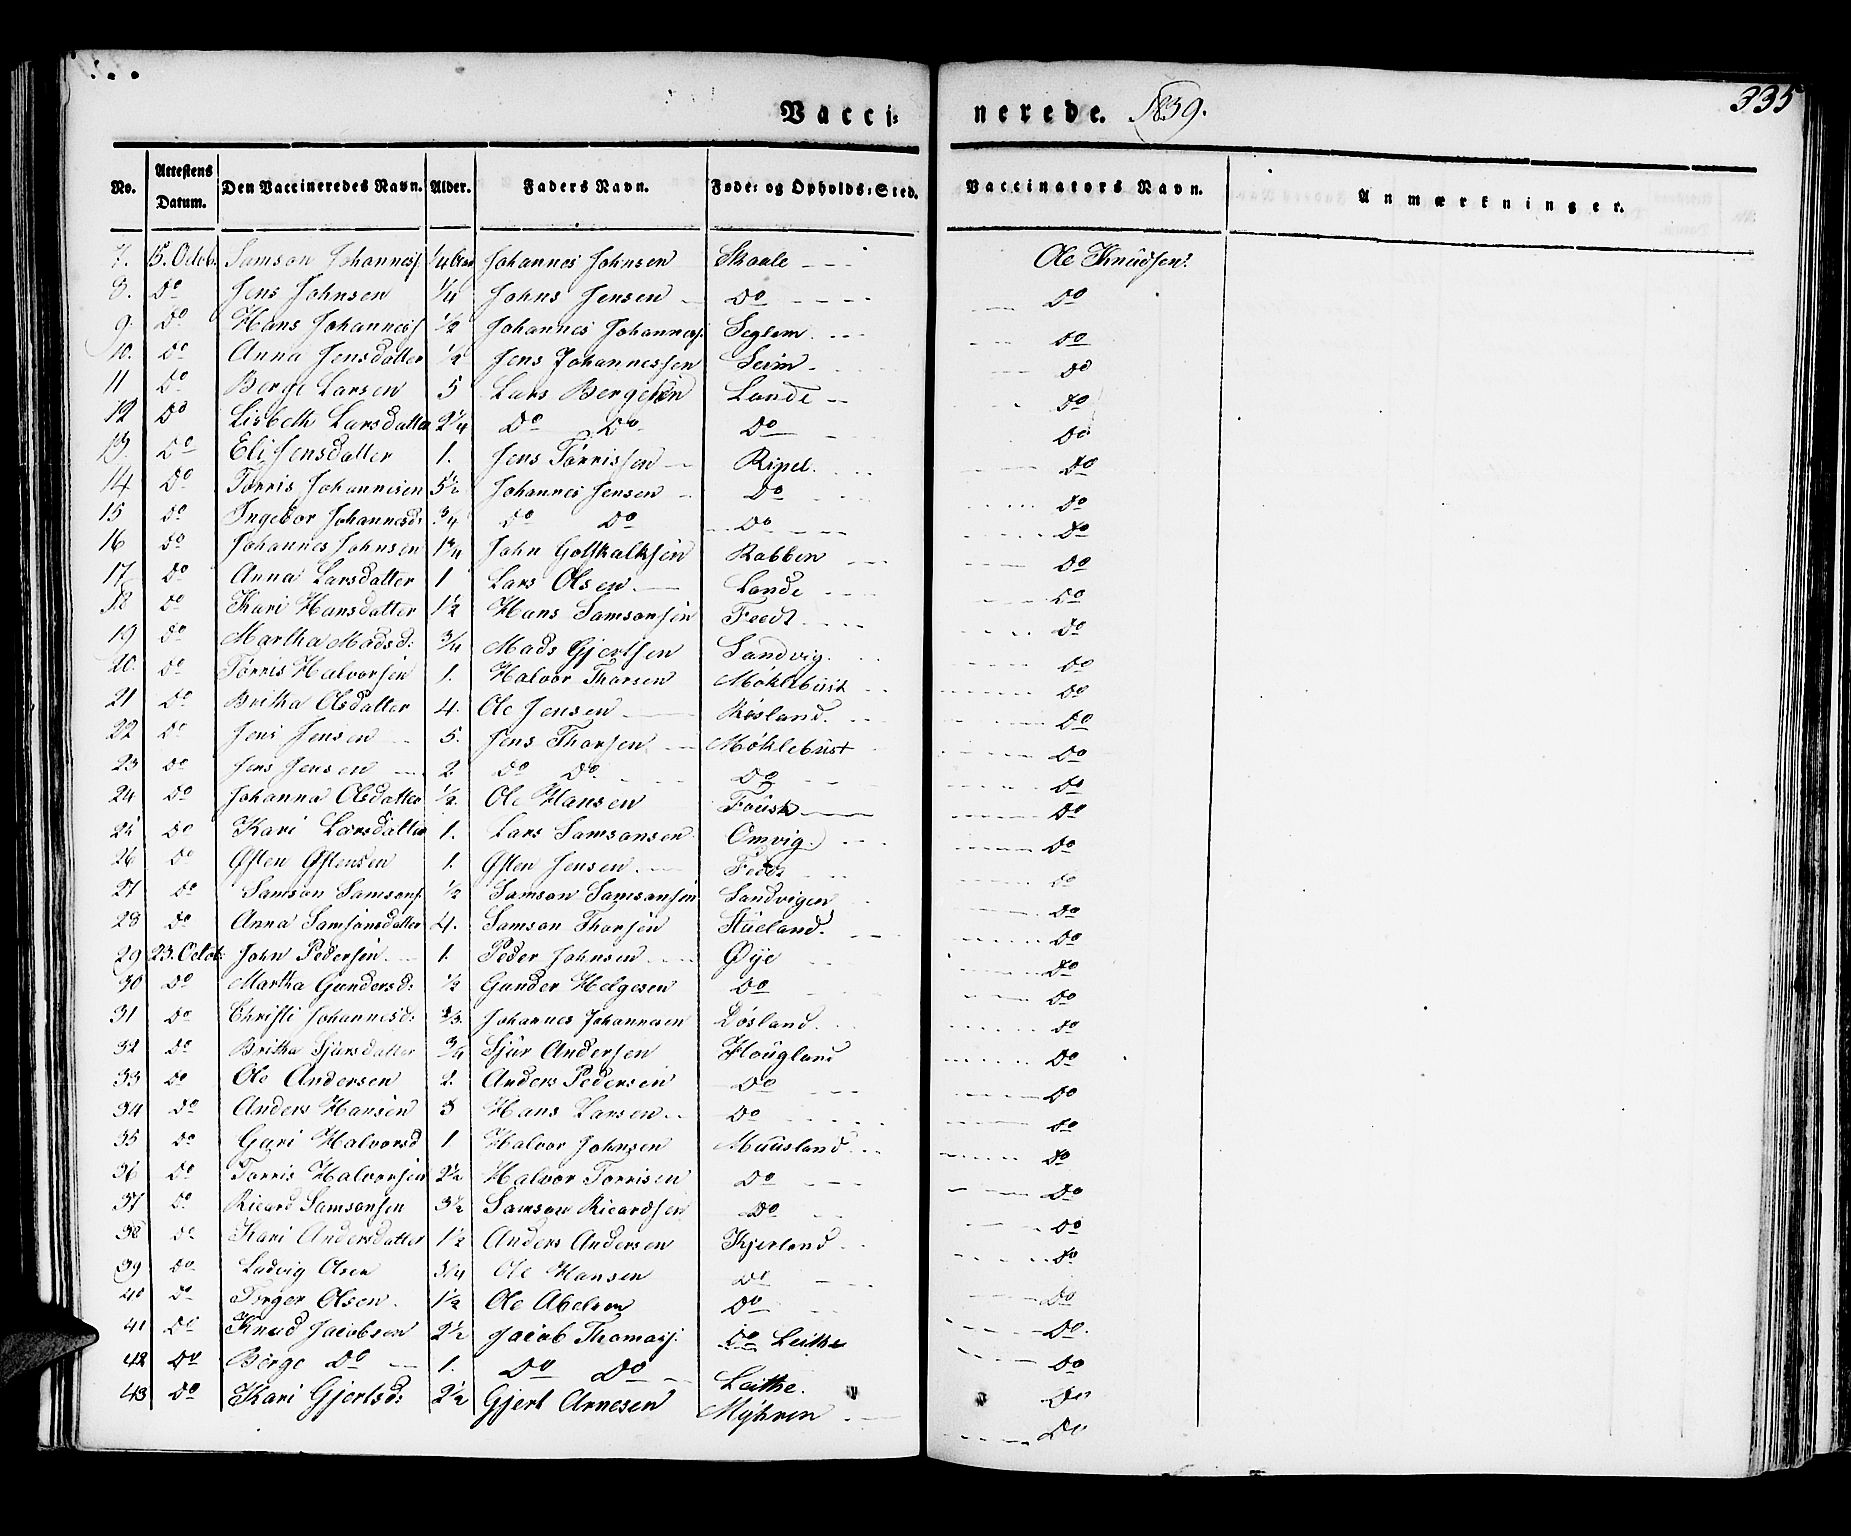 Vacci: nerede. 1839. 335
No. Attestens Datum. Den Vaccineredes Navn. Alder. Faders Navn. Føde: og Opholds: Sted. Vaccinators Navn. Anmærkninger.
7. 15. Octob. Samson Johannesf 1/4 Johannes Johnsen Skaale Ole Knudsen.
8. Do Jens Johnsen 1/4 Johns Jensen Do Do
9. Do Hans Johannesf 1/2 Johannes Johannesf. Seglem Do
10. Do Anna Jensdatter 1/2 Jens Johannessen Seim Do
11 Do Berge Larsen 5 Lars Bergesen Lande Do
12 Do Lisbeth Larsdatter 2 1/4 Do Do Do Do
13. Do Eli Jensdatter 1. Jens Tørrissen Ripel. Do
14 Do Tørris Johannesen 5 1/2 Johannes Jensen Do Do
15 Do Ingebor Johannesd: 3/4 Do Do Do Do
16 Do Johannes Johnsen 1 3/4 John Gotskalksen Rabben Do
17 Do Anna Larsdatter 1 Lars Olsen Lande Do
18 Do Kari Hansdatter 1 1/2 Hans Samsonsen Feedt Do
19 Do Martha Madsd: 3/4 Mads Gjertsen Sandvig. Do
20. Do Tørris Halvorsen 1. Halvor Thorsen Møklebust Do
21 Do Britha Olsdatter 4. Ole Jensen Røsland. Do
22 Do Jens Jensen 5. Jens Thorsen Møklebust Do
23 Do Jens Jensen 2 Do Do Do Do
24 Do Johanna Olsdatter 1/2. Ole Hansen Fousk Do
25 Do Kari Larsdatter 1. Lars Samsonsen Omvig. Do
26 Do Østen Østensen 1. Østen Jensen. Feedt Do
27 Do Samson Samsonf. 1/2 Samson Samsonsen Sandvigen Do
28 Do Anna Samsonsdatter 4. Samson Thorsen Stueland. Do
29 23. Octob: John Pedersen 1. Peder Johnsen Øye Do
30 Do Martha Gundersd: 1/2 Gunder Helgesen Do Do
31 Do Christi Johannesd: Johannes Johannesen Døsland. Do
32 Do Britha Sjursdatter 3/4 Sjur Andersen Hougland Do
33 Do Ole Andersen 2. Anders Pedersen Do Do
34 Do Anders Hansen 3 Hans Larsen Do Do
35 Do Guri Halvorsd 1. Halvor Johnsen Muusland Do
36 Do Torris Halvorsen 2 1/2 Halvor Torrisen Do Do
37 Do Ricard Samsonsen 3 1/2 Samson Ricardsen Do Do
38 Do Kari Andersdatter 1 1/2 Anders Andersen Kjerland Do
39 Do Ludvig Olsen 3/4 Ole Hansen Do Do
40 Do Torger Olsen. 1 1/2 Ole Abelsen Do Do
41 Do Knud Jacobsen 2 1/2 Jacob Thomasf. Do Leithe Do
42 Do Berge Do 1. Do Do Leithe. Do
43 Do Kari Gjertsd: 2 1/2 Gjert Arnesen Myhren Do
Do